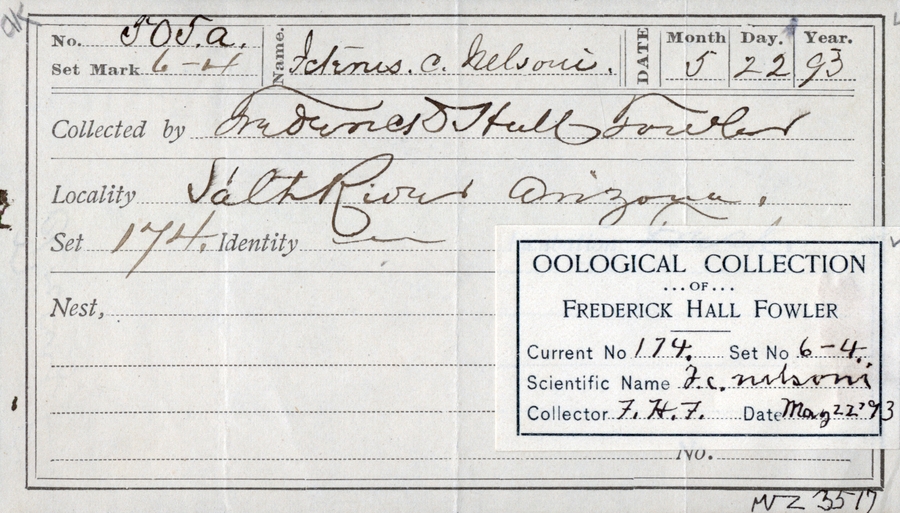 OK
No. 505.a. Name. Icterus. c. Nelsoni. DATE Month Day. Year.
Set Mark 6-4 5 22 93
Collected by Frederick Hall Fowler
Locality Salt River Arizona.
Set 174. Identity
Nest,
OOLOGICAL COLLECTION
...OF...
FREDERICK HALL FOWLER
Current No 174. Set No 6-4.
Scientific Name I. c. nelsoni
Collector F. H. F. Date May 22 '93
No.
MVZ 3517